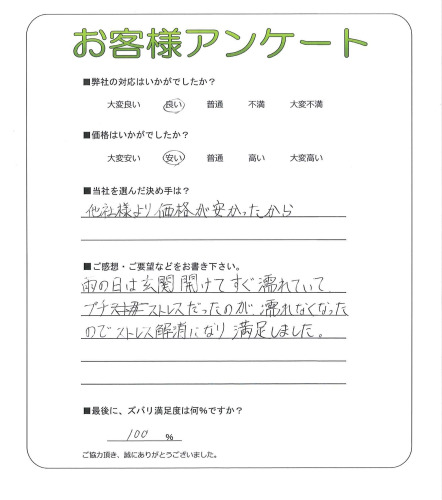 お客様アンケート
■弊社の対応はいかがでしたか？
大変良い 良い 普通 不満 大変不満
■価格はいかがでしたか？
大変安い 安い 普通 高い 大変高い
■当社を選んだ決め手は？
他社様より価格が安かったから
■ご感想・ご要望などをお書き下さい。
雨の日は玄関開けてすぐ濡れていて
プチストレスだったのが濡れなくなった
のでストレス解消になり満足しました。
■最後に、ズバリ満足度は何%ですか？
100 %
ご協力頂き、誠にありがとうございました。